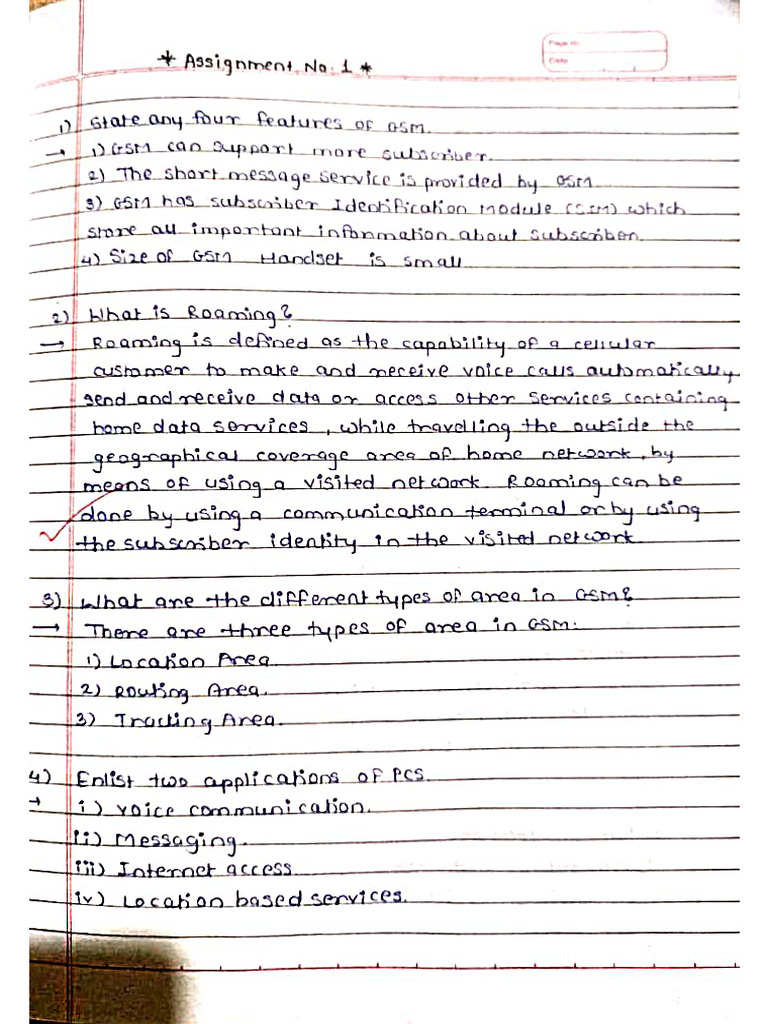 * Assignment No. 1 *
Page No.
Date
1) State any four features of GSM.
→ 1) GSM can support more subscriber.
2) The short message service is provided by GSM
3) GSM has subscriber Identification Module (SIM) which
store all important information about subscriber.
4) Size of GSM Handset is small
2) What is Roaming?
→ Roaming is defined as the capability of a cellular
customer to make and receive voice calls automatically
send and receive data or access other services containing
home data services, while travelling the outside the
geographical coverage area of home network, by
means of using a visited network. Roaming can be
done by using a communication terminal or by using
the subscriber identity in the visited network
3) What are the different types of area in GSM?
→ There are three types of area in GSM:
1) Location Area
2) Routing Area.
3) Tracking Area.
4) Enlist two applications of PCS.
→ i) voice communication.
ii) Messaging.
iii) Internet access
iv) Location based services.